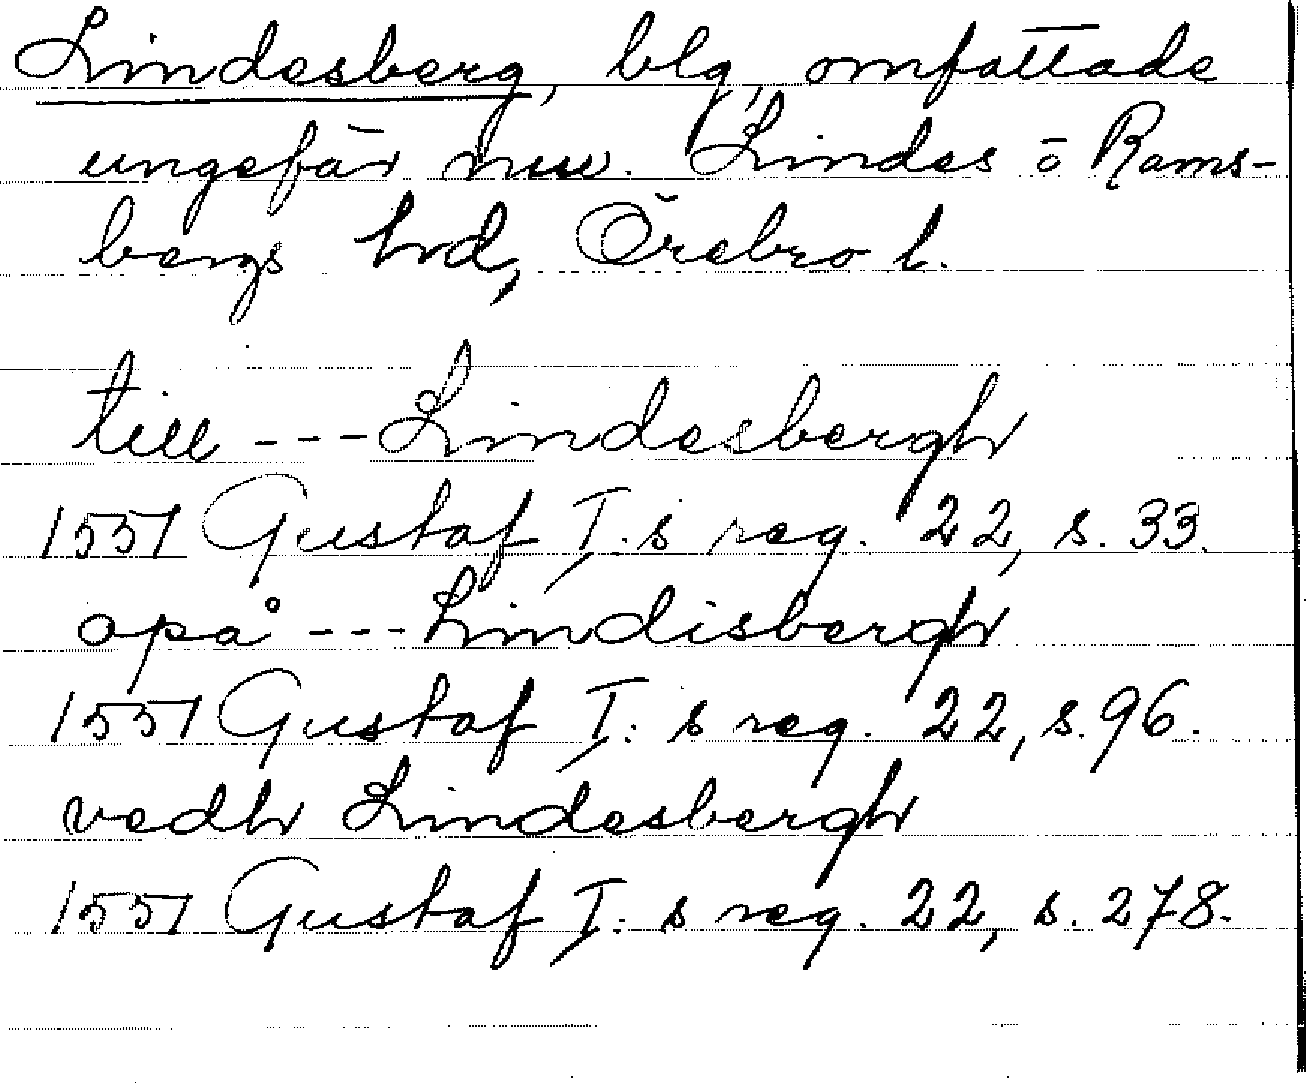 Lindesberg, blg, omfattade
ungefär nuv. Lindes o Rams-
bergs hrd, Örebro l.
till --- Lindesbergh
1551 Gustaf I:s reg. 22, s. 33.
opå --- Lindisbergh
1551 Gustaf I:s reg. 22, s. 96.
vedh Lindesbergh
1551 Gustaf I:s reg. 22, s. 278.